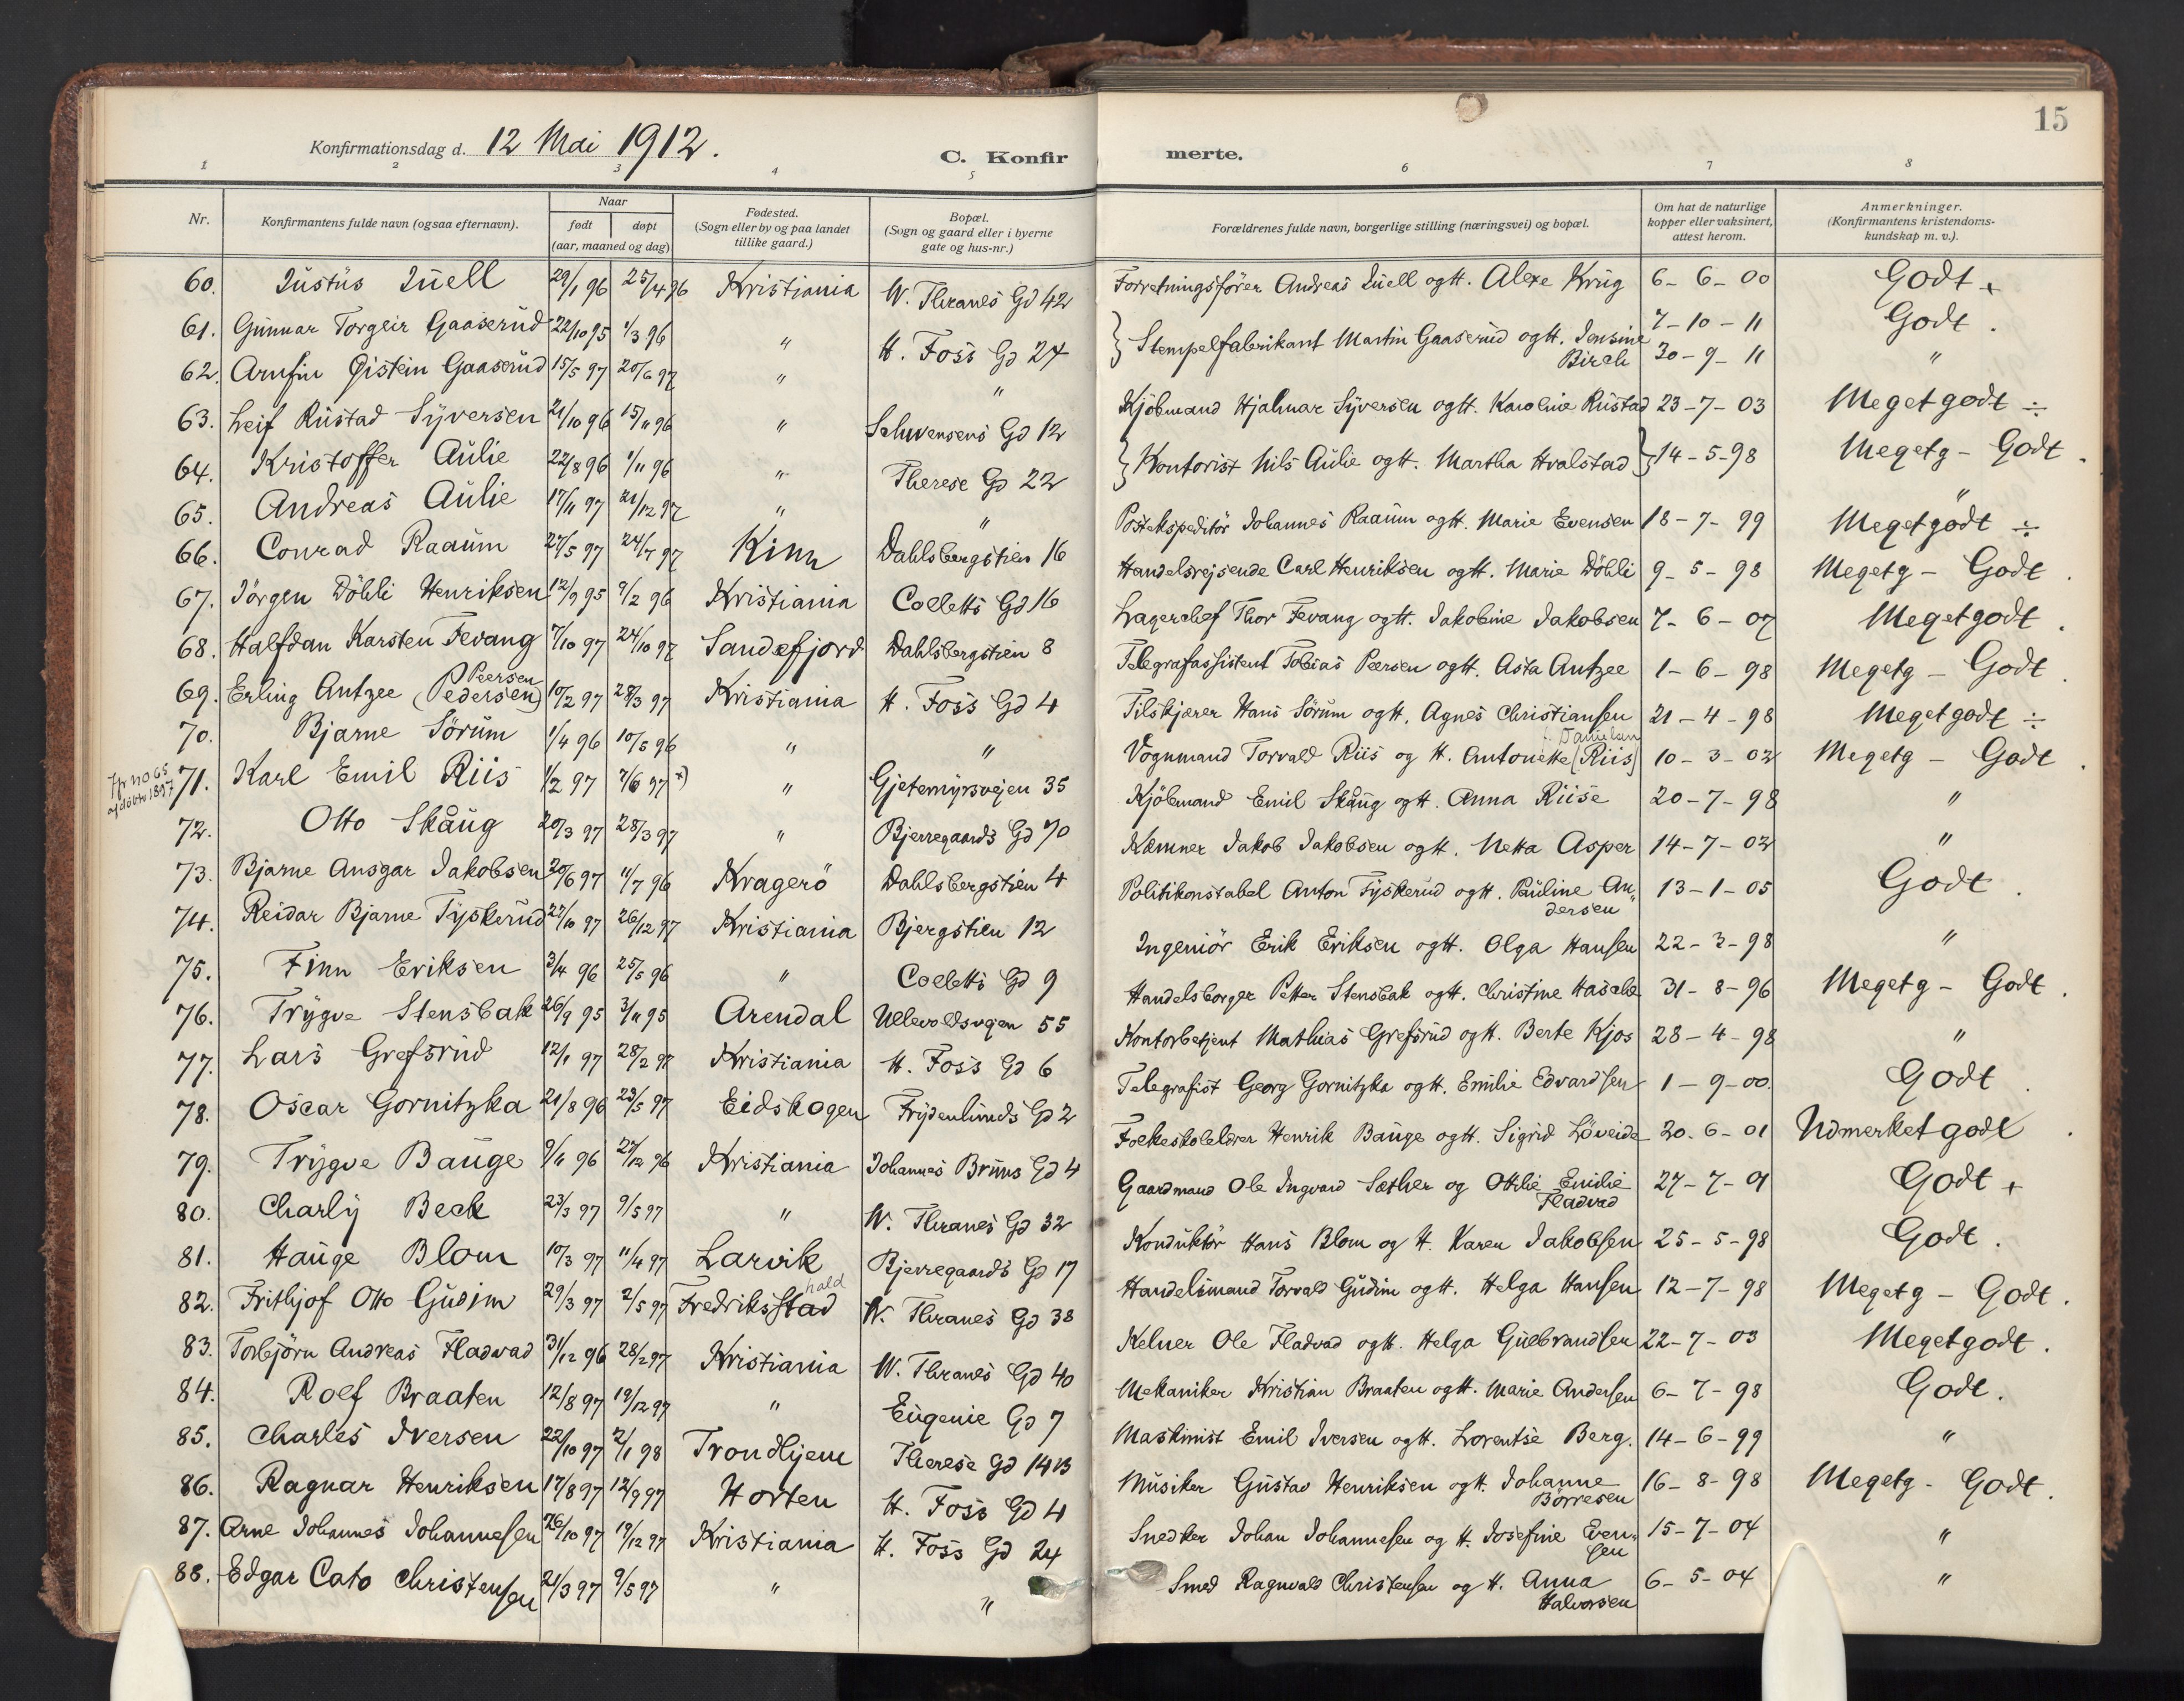 15
Konfirmationsdag d. 12 Mai 1912.
C. Konfirmerte.
1 2 3 4 5 6 7 8
Nr. | Konfirmantens fulde navn (ogsaa efternavn). | Naar født | døpt (aar, maaned og dag) | Fødested. (Sogn eller by og paa landet tillike gaard.) | Bopæl. (Sogn og gaard eller i byerne gate og hus-nr.) | Forældrenes fulde navn, borgerlige stilling (næringsvei) og bopæl. | Om hat de naturlige kopper eller vaksinert, attest herom. | Anmerkninger. (Konfirmantens kristendomskundskap m. v.).
60. Justus Juell 29/1 96 25/4 96 Kristiania W. Thranes Gd 42 Forretningsfører Andreas Juell og H. Alexe Krug 6-6-00 Godt +
61. Gunnar Torgeir Gaaserud 22/10 95 1/3 96 " H. Foss Gd 24 } Stempelfabrikant Martin Gaaserud og H. Jensine Birch 7-10-11 Godt.
62. Arnfin Øistein Gaaserud 15/5 97 20/6 97 " " 30-9-11 "
63. Leif Rustad Syversen 21/10 96 15/11 96 " Schwensens Gd 12 Kjöbmand Hjalmar Syversen og H. Karoline Rustad 23-7-03 Meget godt ÷
64. Kristoffer Aulie 22/8 96 1/11 96 " Therese Gd 22 } Kontorist Nils Aulie og H. Martha Hvalstad } 14-5-98 Meget g - Godt.
65. Andreas Aulie 17/11 97 21/12 97 " " "
66. Conrad Raaum 27/5 97 24/7 97 Kinn Dahlsbergstien 16 Postekspeditör Johannes Raaum og H. Marie Evensen 18-7-99 Meget godt ÷
67. Jörgen Döhli Henriksen 12/9 95 9/2 96 Kristiania Colletts Gd 16 Handelsrejsende Carl Henriksen og H. Marie Döhli 9-5-98 Meget g - Godt.
68. Halfdan Karsten Fevang 7/10 97 24/10 97 Sandefjord Dahlsbergstien 8 Lagerchef Thor Fevang og H. Jakobine Jakobsen 7-6-07 Meget godt.
69. Erling Antzee (Pedersen) Peersen 10/2 97 28/3 97 Kristiania H. Foss Gd 4 Telegrafassistent Tobias Peersen og H. Asta Antzee 1-6-98 Meget g - Godt.
70. Bjarne Sörum 1/4 96 10/5 96 " " Tilskjærer Hans Sörum og H. Agnes Christiansen 21-4-98 Meget godt ÷
Jfr no 65 af döbte 1897
71. Karl Emil Riis 1/2 97 7/6 97 x) " Gjetemyrsvejen 35 Vognmand Torvald Riis og H. Antonette [Riis] 10-3-02 Meget g - Godt.
72. Otto Skaug 20/3 97 28/3 97 " Bjerregaards Gd 70 Kjöbmand Emil Skaug og H. Anna Riise 20-7-98 "
73. Bjarne Ansgar Jakobsen 20/6 97 11/7 96 Kragerö Dahlsbergstien 4 Kæmner Jakob Jakobsen og H. Netta Asper 14-7-02 "
74. Reidar Bjarne Tyskerud 22/10 97 26/12 97 Kristiania Bjergstien 12 Politikonstabel Anton Tyskerud og H. Pauline Andersen 13-1-05 Godt.
75. Finn Eriksen 3/4 96 25/5 96 " Colletts Gd 9 Ingeniör Erik Eriksen og H. Olga Hansen 22-3-98 "
76. Trygve Stensbak 26/9 95 3/11 95 Arendal Ullevoldsvejen 55 Handelsborger Petter Stensbak og H. Christine 31-8-96 Meget g - Godt.
77. Lars Grefsrud 12/1 97 28/2 97 Kristiania H. Foss Gd 6 Kontorbetjent Mathias Grefsrud og H. Berte Kjos 28-4-98 "
78. Oscar Gornitzka 21/8 96 23/5 97 Eidskogen Frydenlunds Gd 2 Telegrafist Georg Gornitzka og H. Emilie Edvardsen 1-9-00. Godt.
79. Trygve Bauge 9/11 96 27/12 96 Kristiania Johannes Bruns Gd 4 Folkeskolelærer Henrik Bauge og H. Sigrid Löveide 20-6-01 Udmerket godt.
80. Charly Beck 23/3 97 9/5 97 " W. Thranes Gd 32 Gaardmand Ole Ingvard Sæther og Ottilie Emilie Fladvad 27-7-01 Godt +
81. Hauge Blom 10/3 97 11/4 97 Larvik Bjerregaards Gd 17 Konduktör Hans Blom og H. Karen Jakobsen 25-5-98 Godt.
82. Frithjof Otto Gudim 29/3 97 2/5 97 Fredriksstad hald W. Thranes Gd 38 Handelsmand Torvald Gudim og H. Helga Hansen 12-7-98 Meget g - Godt.
83. Torbjörn Andreas Fladvad 31/12 96 28/2 97 Kristiania W. Thranes Gd 40 Kelner Ole Fladvad og H. Helga Gulbrandsen 22-7-03 Meget godt.
84. Rolf Braaten 12/8 97 19/12 97 " Eugenie Gd 7 Mekaniker Kristian Braaten og H. Marie Andersen 6-7-98 Godt.
85. Charles Iversen 22/10 97 2/1 98 Trondhjem Therese Gd 14B Maskinist Emil Iversen og H. Lorentse Berg. 14-6-99 "
86. Ragnar Henriksen 17/8 97 12/9 97 Horten H. Foss Gd 4 Musiker Gustav Henriksen og H. Johanne Börresen 16-8-98 Meget g - Godt.
87. Arne Johannes Johannesen 26/10 97 19/12 97 Kristiania H. Foss Gd 24 Snedker Johan Johannesen og H. Josefine Evensen 15-7-04 "
88. Edgar Cato Christensen 21/3 97 9/5 97 " " Smed Ragnvald Christensen og H. Anna Halvorsen 6-5-04 "